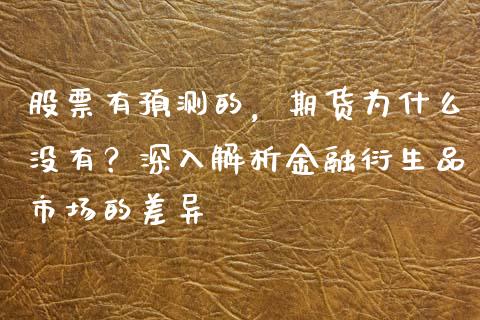 股票有预测的，期货为什么
没有？深入解析金融衍生品
市场的差异